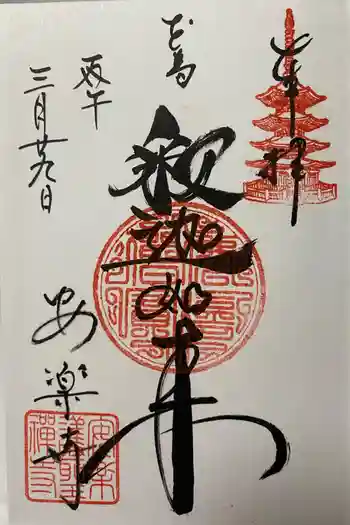 奉拝
釈迦如来
丙午
三月廿九日
安楽寺